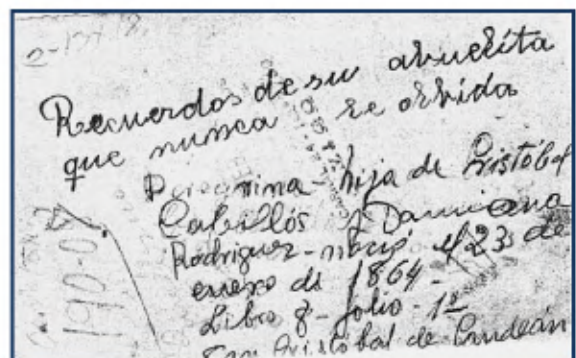 2-137
Recuerdos de su abuelita
que nunca se olvida
hija de Cristóbal
Cabillós y Damiana
Rodriguez - nació el 23 de
enero de 1864 -
Libro 8 - folio - 12
San Cristobal de
190-07